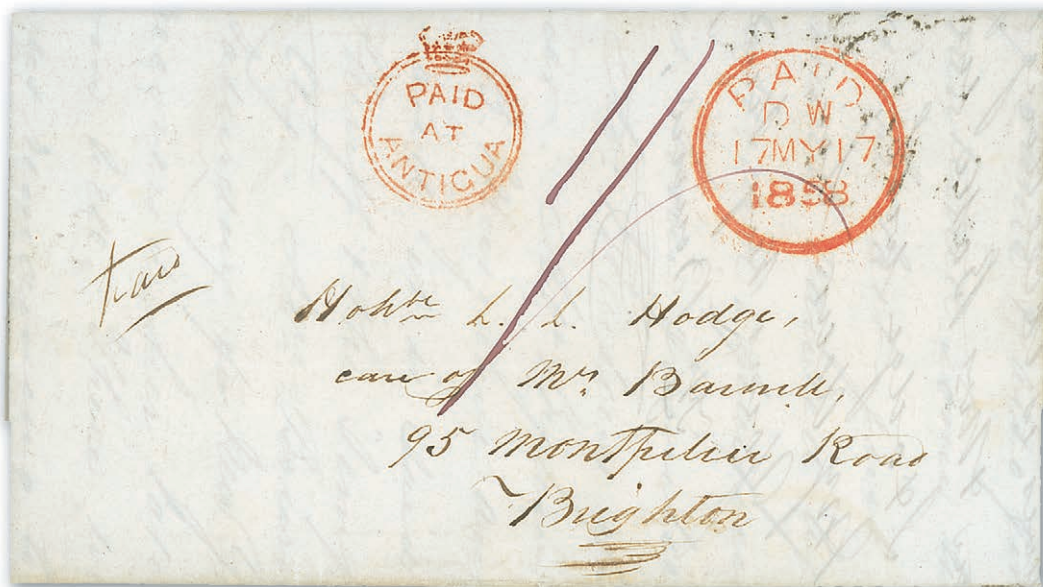 PAID
AT
ANTIGUA
PAID
DW
17MY17
1858
1/
Paid
Honble L. L. Hodge,
care of Mrs
95 Montpelier Road
Brighton